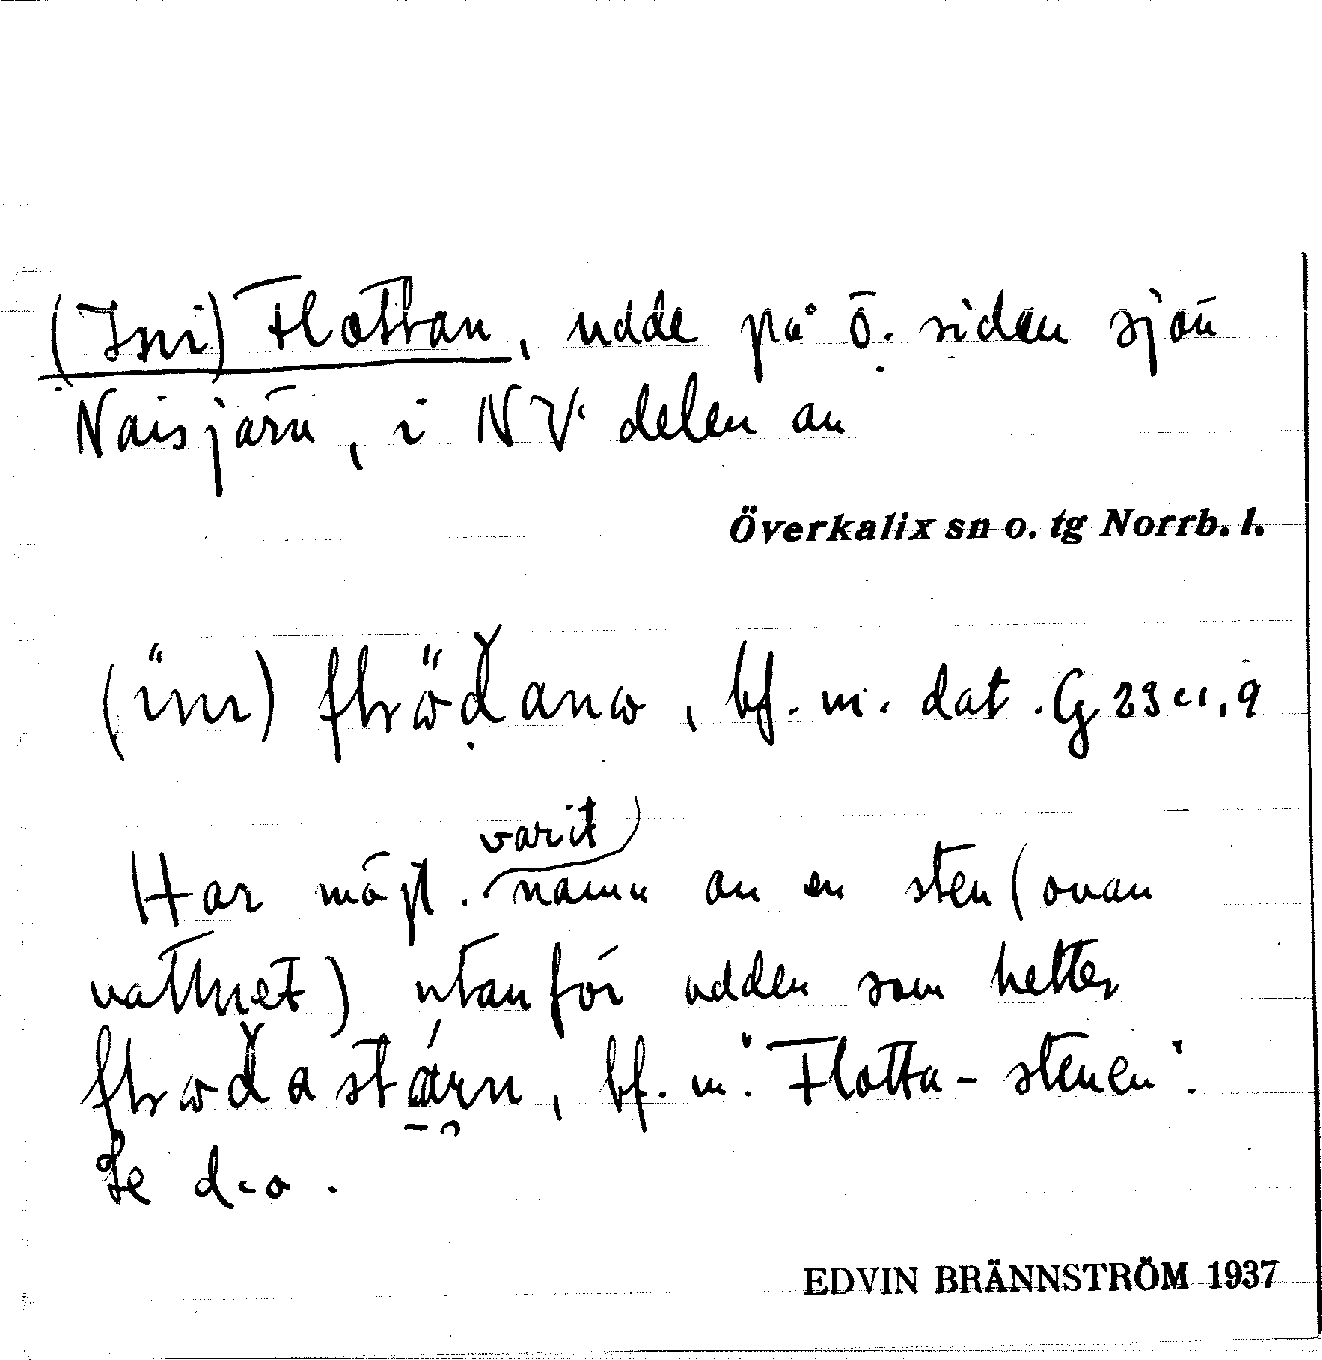 (Ini) Flottan, udde på ö. siden sjön
Naisjärn, i NV delen av
Överkalix sn o. tg Norrb. l.
bf. m. dat.
Har möjl. varit namn av en sten (ovan
vattnet) utanför udden som hetter
bf. m. "Flotta-stenen".
Se d-o.
EDVIN BRÄNNSTRÖM 1937